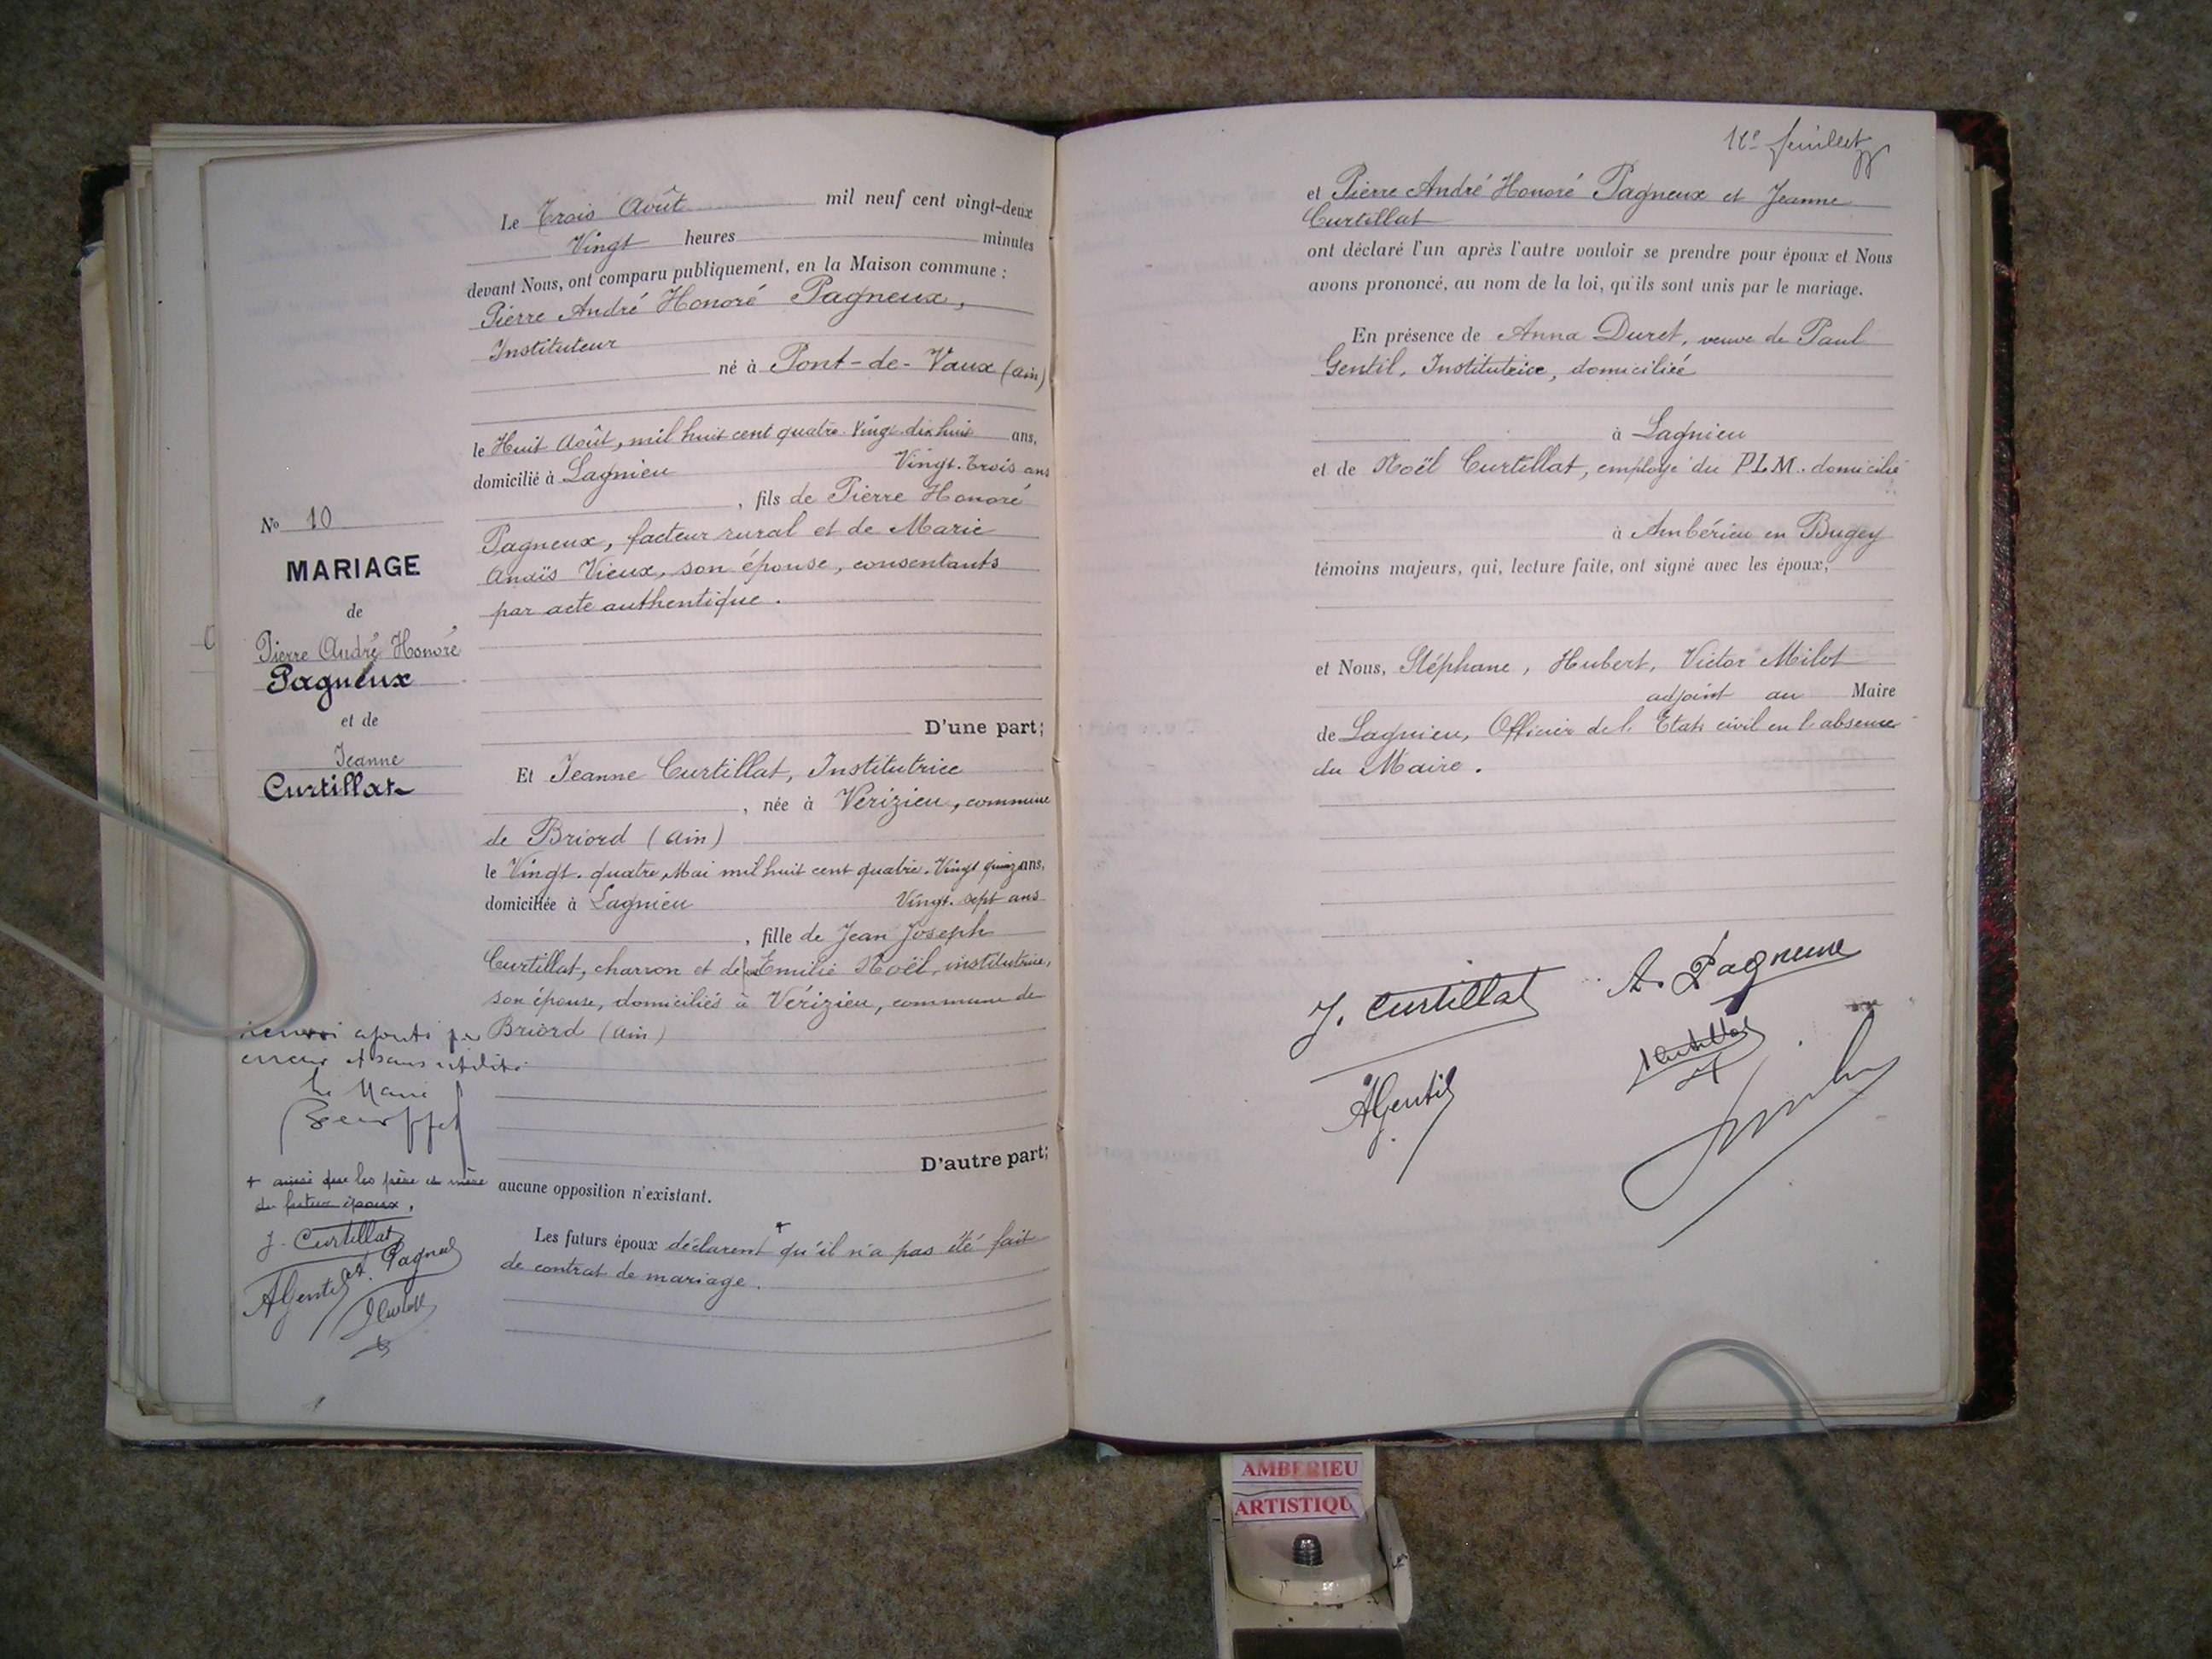 Le Trois Août mil neuf cent vingt-deux
Vingt heures minutes
devant Nous, ont comparu publiquement, en la Maison commune :
Pierre André Honoré Pagneux,
Instituteur
né à Pont-de-Vaux (Ain)
le Huit Août, mil huit cent quatre-Vingt-dix huit ans,
domicilié à Lagnieu Vingt-Trois ans
, fils de Pierre Honoré
Pagneux, facteur rural et de Marie
Anaïs Vieux, son épouse, consentants
par acte authentique.
D'une part;
Et Jeanne Curtillat, Institutrice
, née à Vérizieu, commune
de Briord (Ain)
le Vingt-quatre Mai mil huit cent quatre-Vingt quinze ans,
domiciliée à Lagnieu Vingt-sept ans
, fille de Jean Joseph
Curtillat, charron et de Emilie Noël, institutrice,
son épouse, domiciliés à Vérizieu, commune de
Briord (Ain)
D'autre part;
aucune opposition n'existant.
Les futurs époux déclarent + qu'il n'a pas été fait
de contrat de mariage.
No 10
MARIAGE
de
Pierre André Honoré
Pagneux
et de
Jeanne
Curtillat
renvoi ajouté par
erreur et sans utilité
Le Maire
+ ainsi que les père et mère
du futur époux.
J. Curtillat
A. Pagneux
AGentil
11e feuillet
et Pierre André Honoré Pagneux et Jeanne
Curtillat
ont déclaré l'un après l'autre vouloir se prendre pour époux et Nous
avons prononcé, au nom de la loi, qu'ils sont unis par le mariage.
En présence de Anna Duret, veuve de Paul
Gentil, Institutrice, domiciliée
à Lagnieu
et de Noël Curtillat, employé du P.L.M. domicilié
à Ambérieu en Bugey
témoins majeurs, qui, lecture faite, ont signé avec les époux,
et Nous, Stéphane, Hubert, Victor Milot
adjoint au Maire
de Lagnieu, Officier de l'Etat civil en l'absence
du Maire.
J. Curtillat
A. Pagneux
AGentil
AMBERIEU
ARTISTIQU